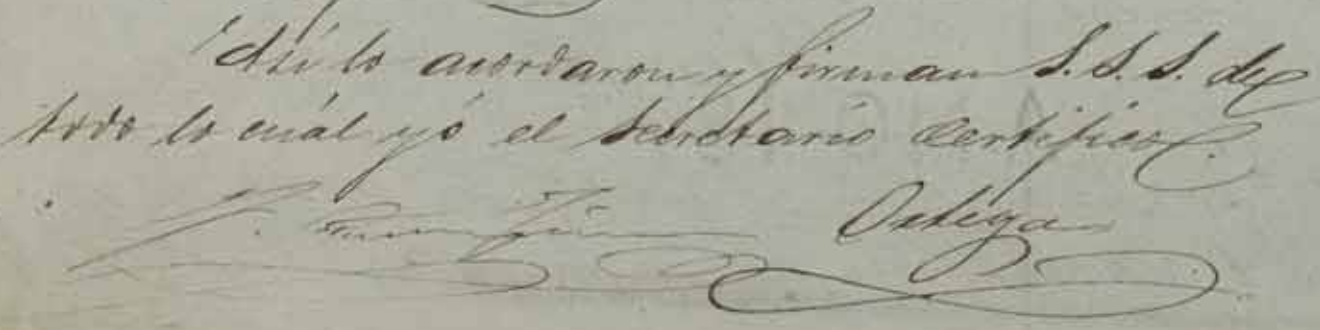 Así lo acordaron y firman S. S. S. de
todo lo cuál yó el Secretario Certifico.
Ortega